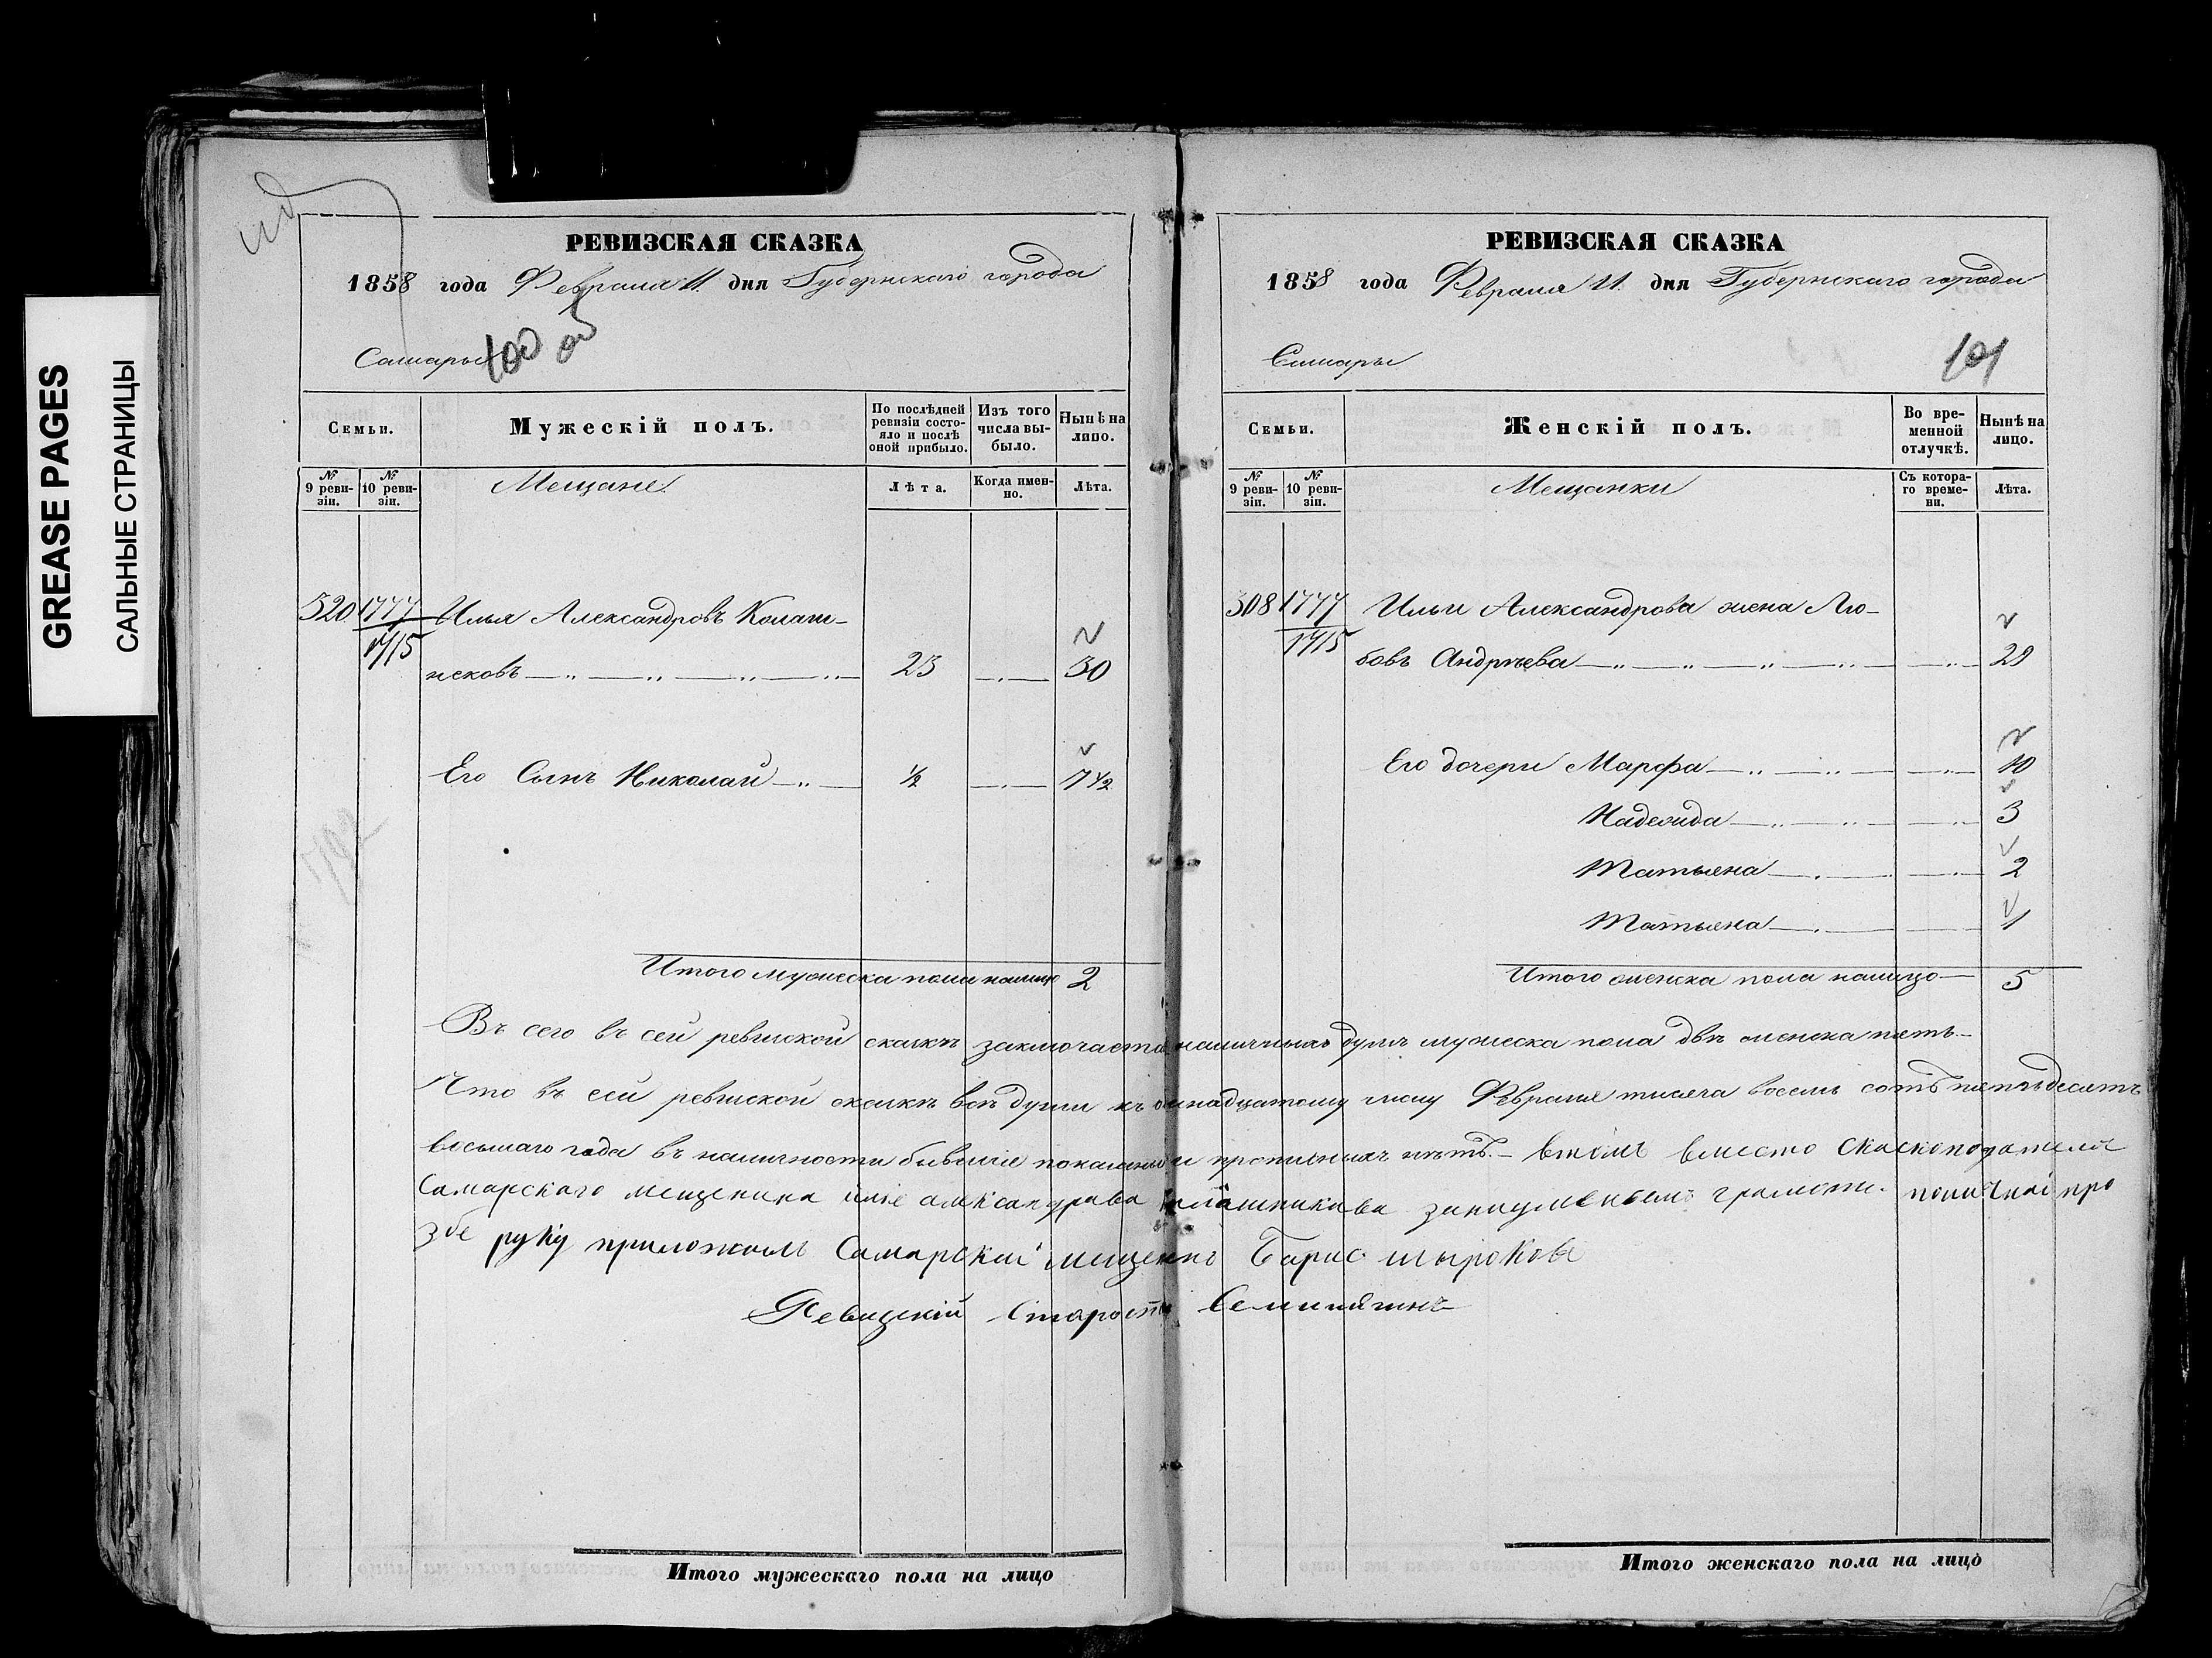 GREASE PAGES
САЛЬНЫЕ СТРАНИЦЫ
РЕВИЗСКАЯ СКАЗКА
1858 года Февраля 11. дня Губернскаго города
Самары
100 об
Семьи.
Мужескій полъ.
По послѣдней ревизіи состояло и послѣ оной прибыло.
Изъ того числа выбыло.
Нынѣ на лицо.
№ 9 ревизіи.
№ 10 ревизіи.
Мещане
Лѣта.
Когда именно.
Лѣта.
520 1777 Илья Александровъ Калаш-
1715
никовъ 23 30
Его Сынъ Николай ½ 7 ½
Итого мужеска пола налицо 2
РЕВИЗСКАЯ СКАЗКА
1858 года Февраля 11. дня Губернскаго города
Самары
101
Семьи.
Женскій полъ.
Во временной отлучкѣ.
Нынѣ на лицо.
№ 9 ревизіи.
№ 10 ревизіи.
Мещанки
Съ котораго времени.
Лѣта.
508 1777 Ильи Александрова жена Лю-
1715
бовь Андрѣева 29
Его дочери Марфа 10
Надежда 3
Татьяна 2
Татьяна 1
Итого женска пола налицо 5
Въ сего въ сей ревиской скаскѣ заключается наличныхъ душъ мужеска пола двѣ женска пять
Что въ сей ревиской скаскѣ всѣ души къ числу Февраля тысяча восемь сотъ пятьдесятъ
восьмаго года въ наличности бывшіе показаны и прописныхъ нѣтъ. - втомъ вместо Скаскоподателя
Самарскаго мещенина илье александрава калашникава грамоти. поличнаи про
збе руку приложилъ Самарскаи мещенинъ Барис шыроковъ
Ревизскій Староста
Итого мужескаго пола на лицо
Итого женскаго пола на лицо